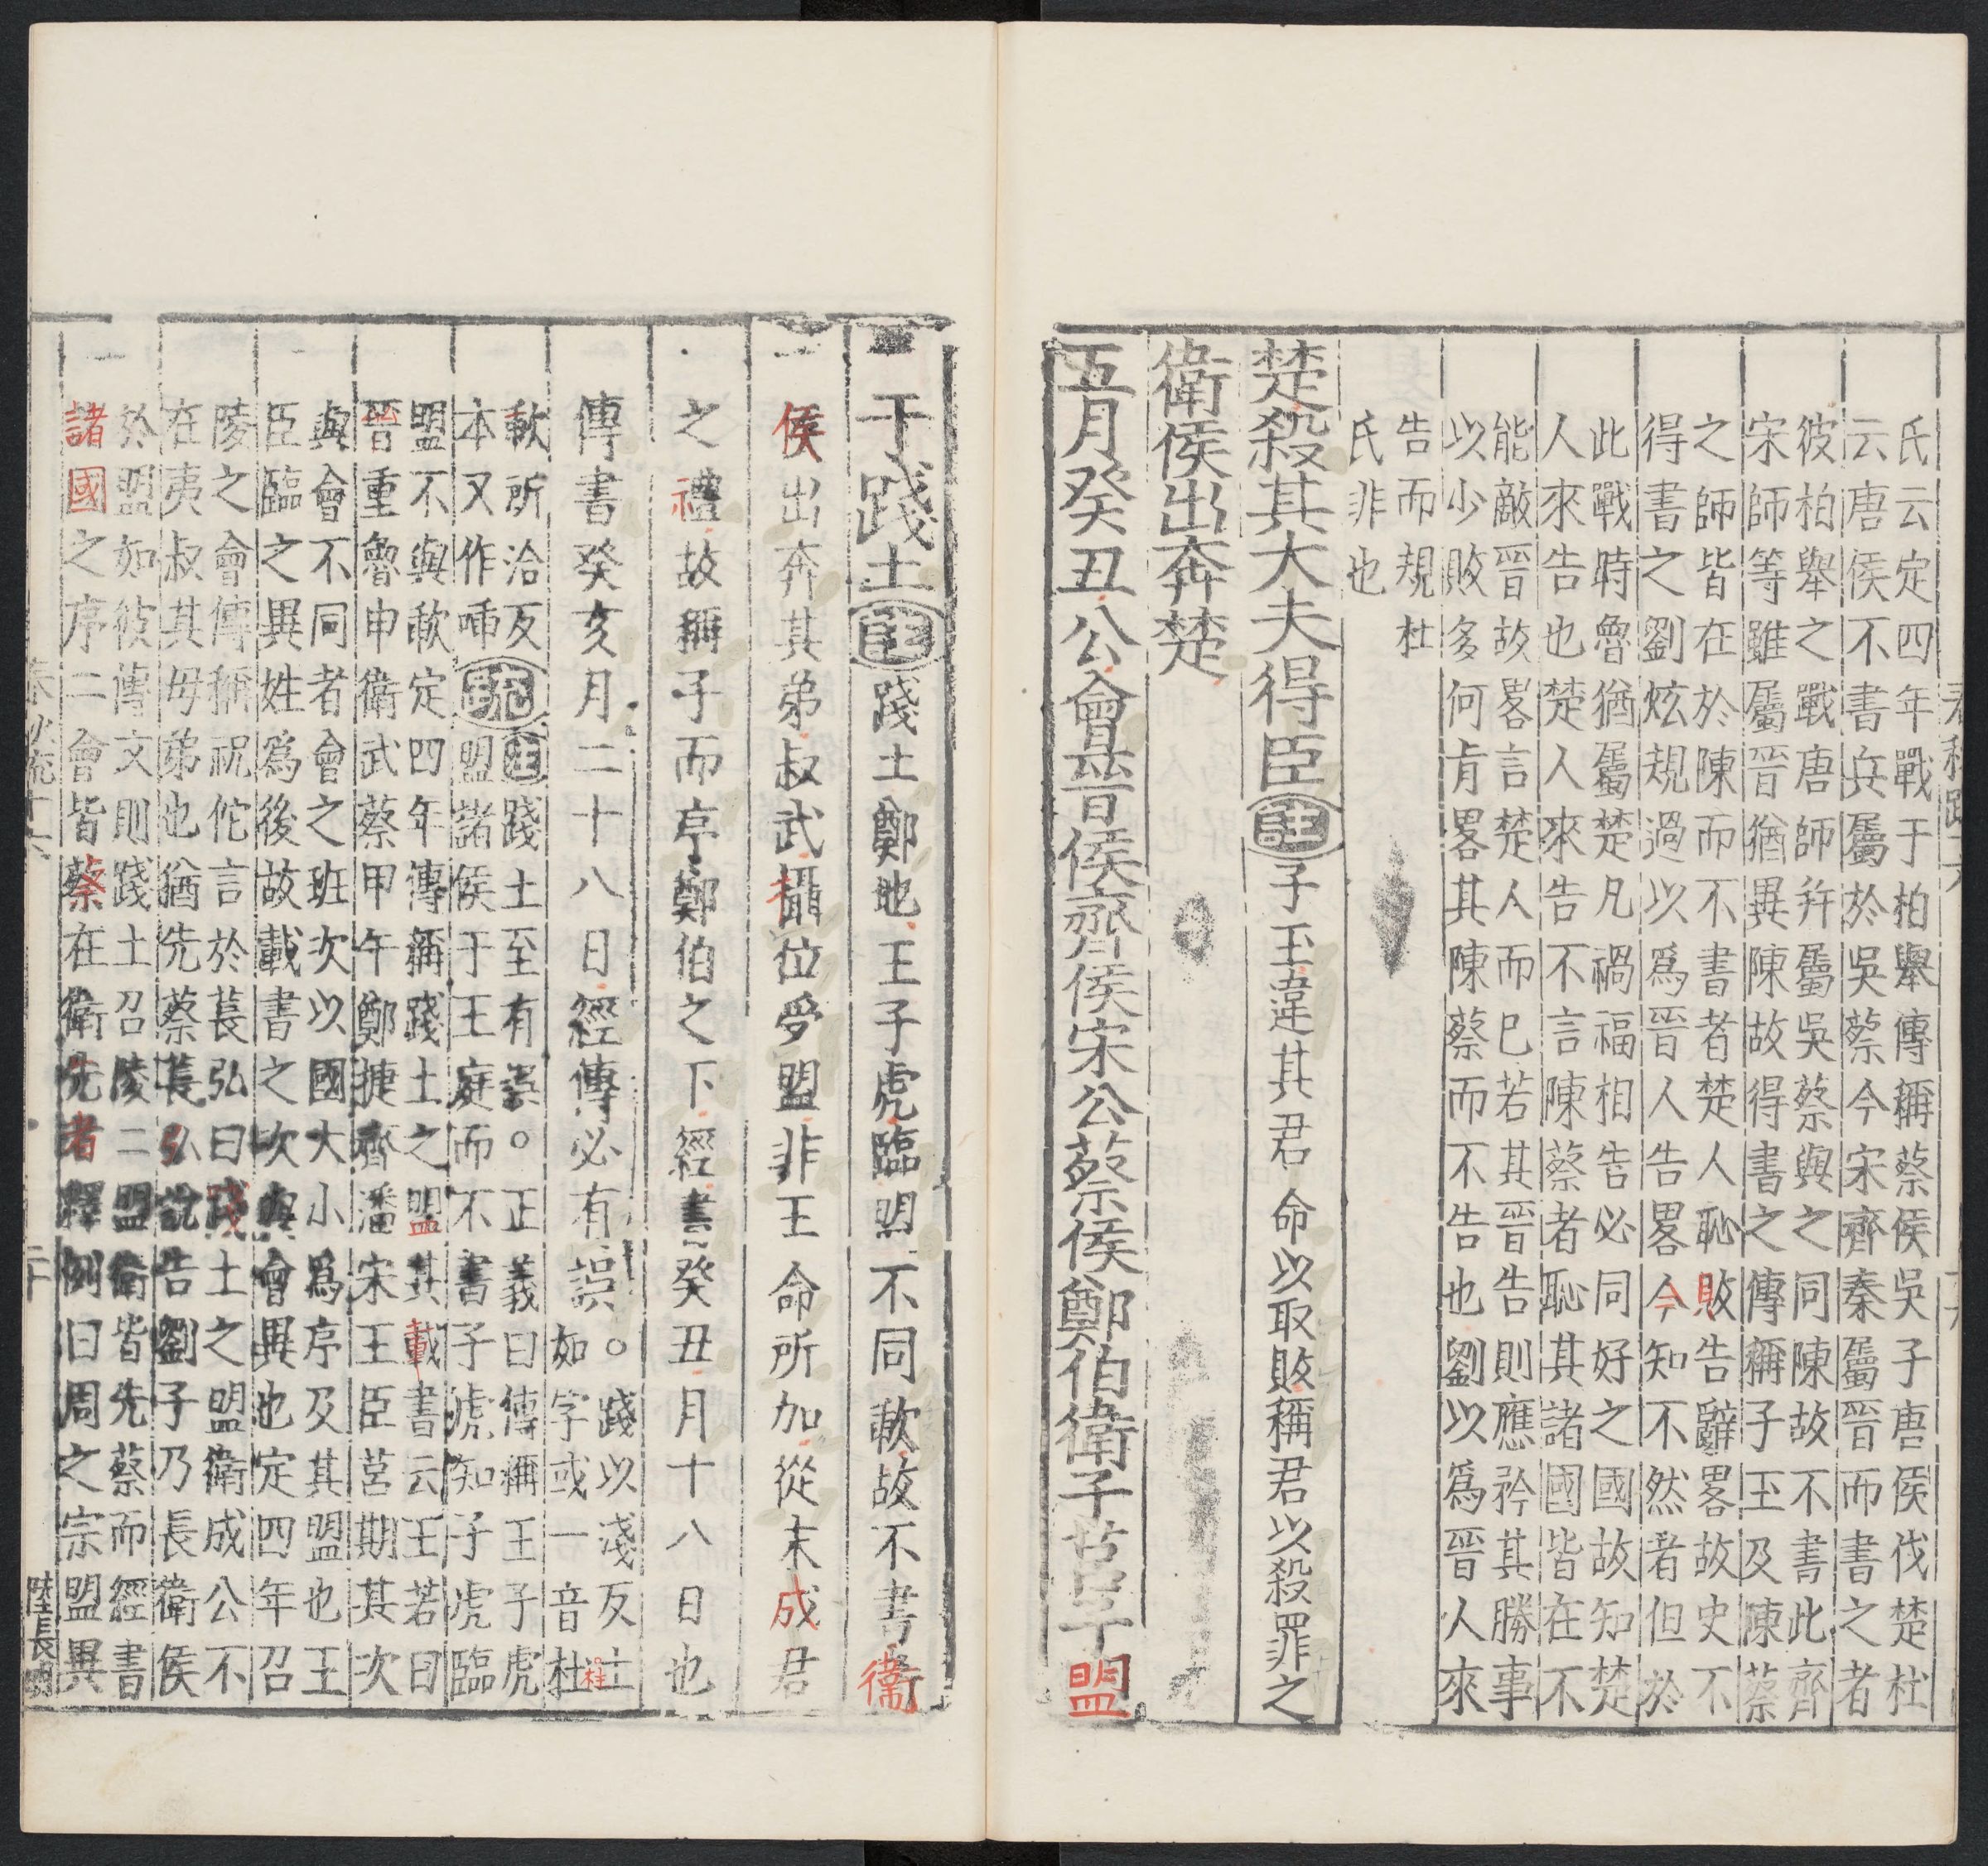 氏云定四年戰于柏舉傳稱蔡侯吳子唐侯伐楚杜
云唐侯不書兵屬於吳蔡今宋齊秦屬晉而書之者
彼柏舉之戰唐師并屬吳蔡與之同陳故不書此齊
宋師等雖屬晉猶異陳故得書之傳稱子玉及陳蔡
之師皆在於陳而不書者楚人恥敗告辭畧故史不
得書之劉炫規過以爲晉人告畧今知不然者但於
此戰時魯猶屬楚凡禍福相告必同好之國故知楚
人來告也楚人來告不言陳蔡者恥其諸國皆在不
能敵晉故畧言楚人而已若其晉告則應矜其勝事
以少敗多何肯畧其陳蔡而不告也劉以爲晉人來
告而規杜
氏非也
楚殺其大夫得臣註子玉違其君命以取敗稱君以殺罪之
衛侯出奔楚
五月癸丑公會晉侯齊侯宋公蔡侯鄭伯衛子莒子盟
于踐土註踐土鄭地王子虎臨盟不同歃故不書衛
侯出奔其弟叔武攝位受盟非王命所加從未成君
之禮故稱子而序鄭伯之下經書癸丑月十八日也
傳書癸亥月二十八日經傳必有誤○踐以淺反土
如字或一音杜
歃所洽反
本又作唾
疏註踐土至有誤○正義曰傳稱王子虎
盟諸侯于王庭而不書子虎知子虎臨
盟不與歃定四年傳稱踐土之盟其載書云王若曰
晉重魯申衛武蔡甲午鄭捷齊潘宋王臣莒期其次
與會不同者會之班次以國大小爲序及其盟也王
臣臨之異姓爲後故載書之次與會異也定四年召
陵之會傳稱祝佗言於萇弘曰踐土之盟衛成公不
在夷叔其母弟也猶先蔡萇弘說告劉子乃長衛侯
於盟如彼傳文則踐土召陵二盟衛皆先蔡而經書
諸國之序二會皆蔡在衛先者釋例曰周之宗盟異